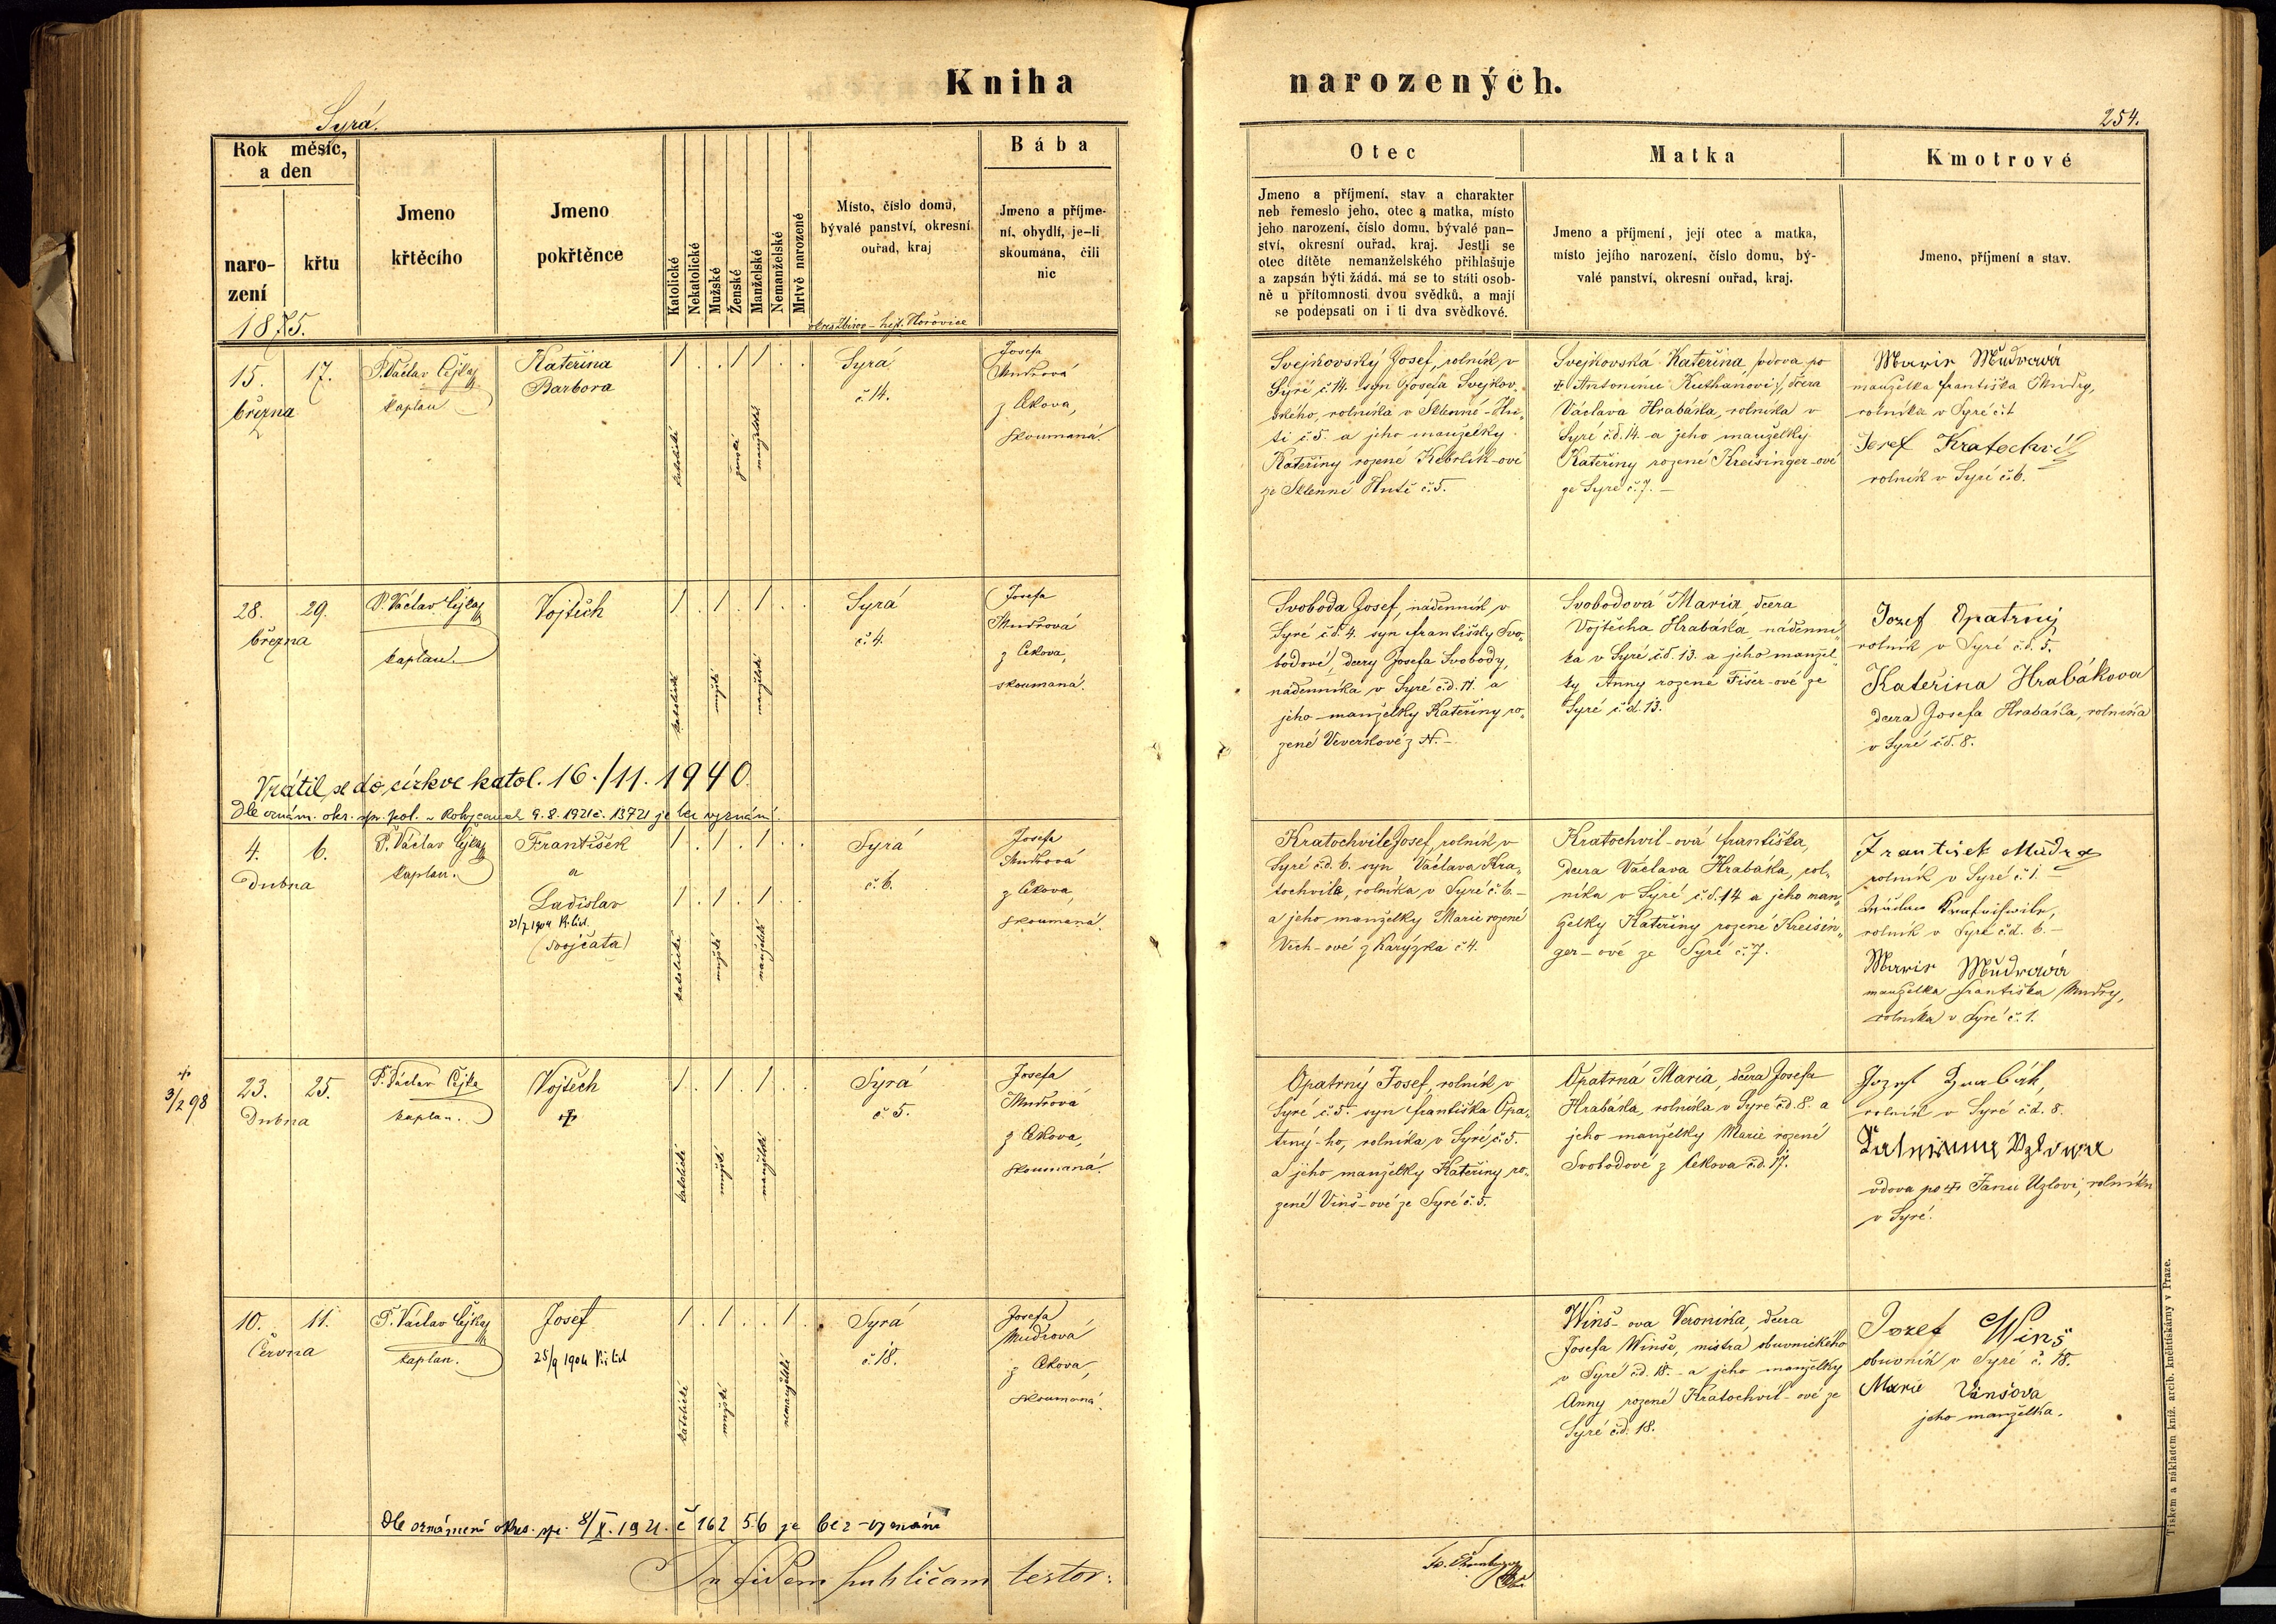 Kniha
narozených.
Syrá.
254.
Rok měsíc,
a den
naro-
zení
křtu
1875.
Jmeno
křtěcího
Jmeno
pokřtěnce
Katolické
Nekatolické
Mužské
Ženské
Manželské
Nemanželské
Mrtvě narozené
Místo, číslo domu,
bývalé panství, okresní
ouřad, kraj
okres Zbirov - hejt. Hořovice
Bába
Jmeno a příjme-
ní, obydlí, je-li
skoumána, čili
nic
Otec
Jmeno a příjmení, stav a charakter
neb řemeslo jeho, otec a matka, místo
jeho narození, číslo domu, bývalé pan-
ství, okresní ouřad, kraj. Jestli se
otec dítěte nemanželského přihlašuje
a zapsán býti žádá, má se to státi osob-
ně u přítomnosti dvou svědků, a mají
se podepsati on i ti dva svědkové.
Matka
Jmeno a příjmení, její otec a matka,
místo jejího narození, číslo domu, bý-
valé panství, okresní ouřad, kraj.
Kmotrové
Jmeno, příjmení a stav.
15. 17.
března
P. Václav Čejka
kaplan
Kateřina
Barbora
1 . . 1 1 . .
katolické
ženské
manželské
Syrá
č. 14.
Josefa
Mudrová
z Cekova,
skoumaná.
Svejkovský Josef, rolník v
Syré č. 14. syn Josefa Svejkov-
ského, rolníka v Sklenné-Hu-
ti č. 5. a jeho manželky
Kateřiny rozené Kebrlík-ové
ze Sklenné Hutě č. 5.
Svejkovská Kateřina, vdova po
† Antonínu Kuthanovi, dcera
Václava Hrabáka, rolníka v
Syré č.d. 14. a jeho manželky
Kateřiny rozené Kreisinger-ové
ze Syré č. 7. -
Marie Mudrová
manželka Františka Mudry,
rolníka v Syré č. 1
Josef Kratochvíl
rolník v Syré č. 6.
28. 29.
března
P. Václav Čejka
kaplan.
Vojtěch
1 . 1 . 1 . .
katolické
mužské
manželské
Syrá
č. 4.
Josefa
Mudrová
z Cekova,
skoumaná.
Svoboda Josef, nádenník v
Syré č.d. 4. syn Františky Svo-
bodové, dcery Josefa Svobody,
nádenníka v Syré č.d. 11. a
jeho manželky Kateřiny ro-
zené Veverkové z N. -
Svobodová Maria, dcera
Vojtěcha Hrabáka, nádenní-
ka v Syré č.d. 13. a jeho manžel-
ky Anny rozené Fišer-ové ze
Syré č.d. 13.
Jozef Opatrný
rolník v Syré č.d. 5.
Kateřina Hrabákova
dcera Josefa Hrabáka, rolníka
v Syré č.d. 8.
Vrátil se do církve katol. 16./11. 1940.
Dle oznám. okr. spr. pol. v Rokycanech 9. 8. 1921 č. 13721 je bez vyznání.
4. 6.
Dubna
P. Václav Čejka
kaplan.
František
a
Ladislav
(dvojčata)
1 . 1 . 1 . .
1 . 1 . 1 . .
katolické
mužské
manželské
Syrá
č. 6.
Josefa
Mudrová
z Cekova,
skoumaná.
Kratochvile Josef, rolník v
Syré č.d. 6. syn Václava Kra-
tochvila, rolníka v Syré č. 6. -
a jeho manželky Marie rozené
Vich-ové z Karýzka č. 4.
Kratochvil-ová Františka,
dcera Václava Hrabáka, rol-
níka v Syré č.d. 14 a jeho man-
želky Kateřiny rozené Kreisin-
ger-ové ze Syré č. 7.
František Mudra
rolník v Syré č. 1. -
rolník v Syré č.d. 6. -
Marie Mudrová
manželka Františka Mudry,
rolníka v Syré č. 1.
3/2 98
23. 25.
Dubna
P. Václav Čejka
kaplan.
Vojtěch
†
1 . 1 . 1 . .
katolické
mužské
manželské
Syrá
č. 5.
Josefa
Mudrová
z Cekova,
skoumaná.
Opatrný Josef, rolník v
Syré č. 5. syn Františka Opa-
trný-ho, rolníka v Syré č. 5.
a jeho manželky Kateřiny ro-
zené Vinš-ové ze Syré č. 5.
Opatrná Maria, dcera Josefa
Hrabáka, rolníka v Syré č.d. 8. a
jeho manželky Marie rozené
Svobodové z Cekova č.d. 17.
Jozef Hrabák,
rolník v Syré č.d. 8.
vdova po † Janu Uzlovi, rolníku
v Syré.
10. 11.
Června
P. Václav Čejka
kaplan.
Josef
25/9 1904
1 . 1 . . 1 .
katolické
mužské
nemanželské
Syrá
č. 18.
Josefa
Mudrová
z Cekova,
skoumaná.
Winš-ova Veronika, dcera
Josefa Winše, mistra obuvnického
v Syré č.d. 18. - a jeho manželky
Anny rozené Kratochvil-ové ze
Syré č.d. 18.
Jozef Winš
obuvník v Syré č. 18.
Marie Vinšova
jeho manželka.
Dle oznámení okres. spr. 8/X. 1921. č 162 56 je bez vyznání
In fidem publicam testor:
Tiskem a nákladem kníž. arcib. knihtiskárny v Praze.